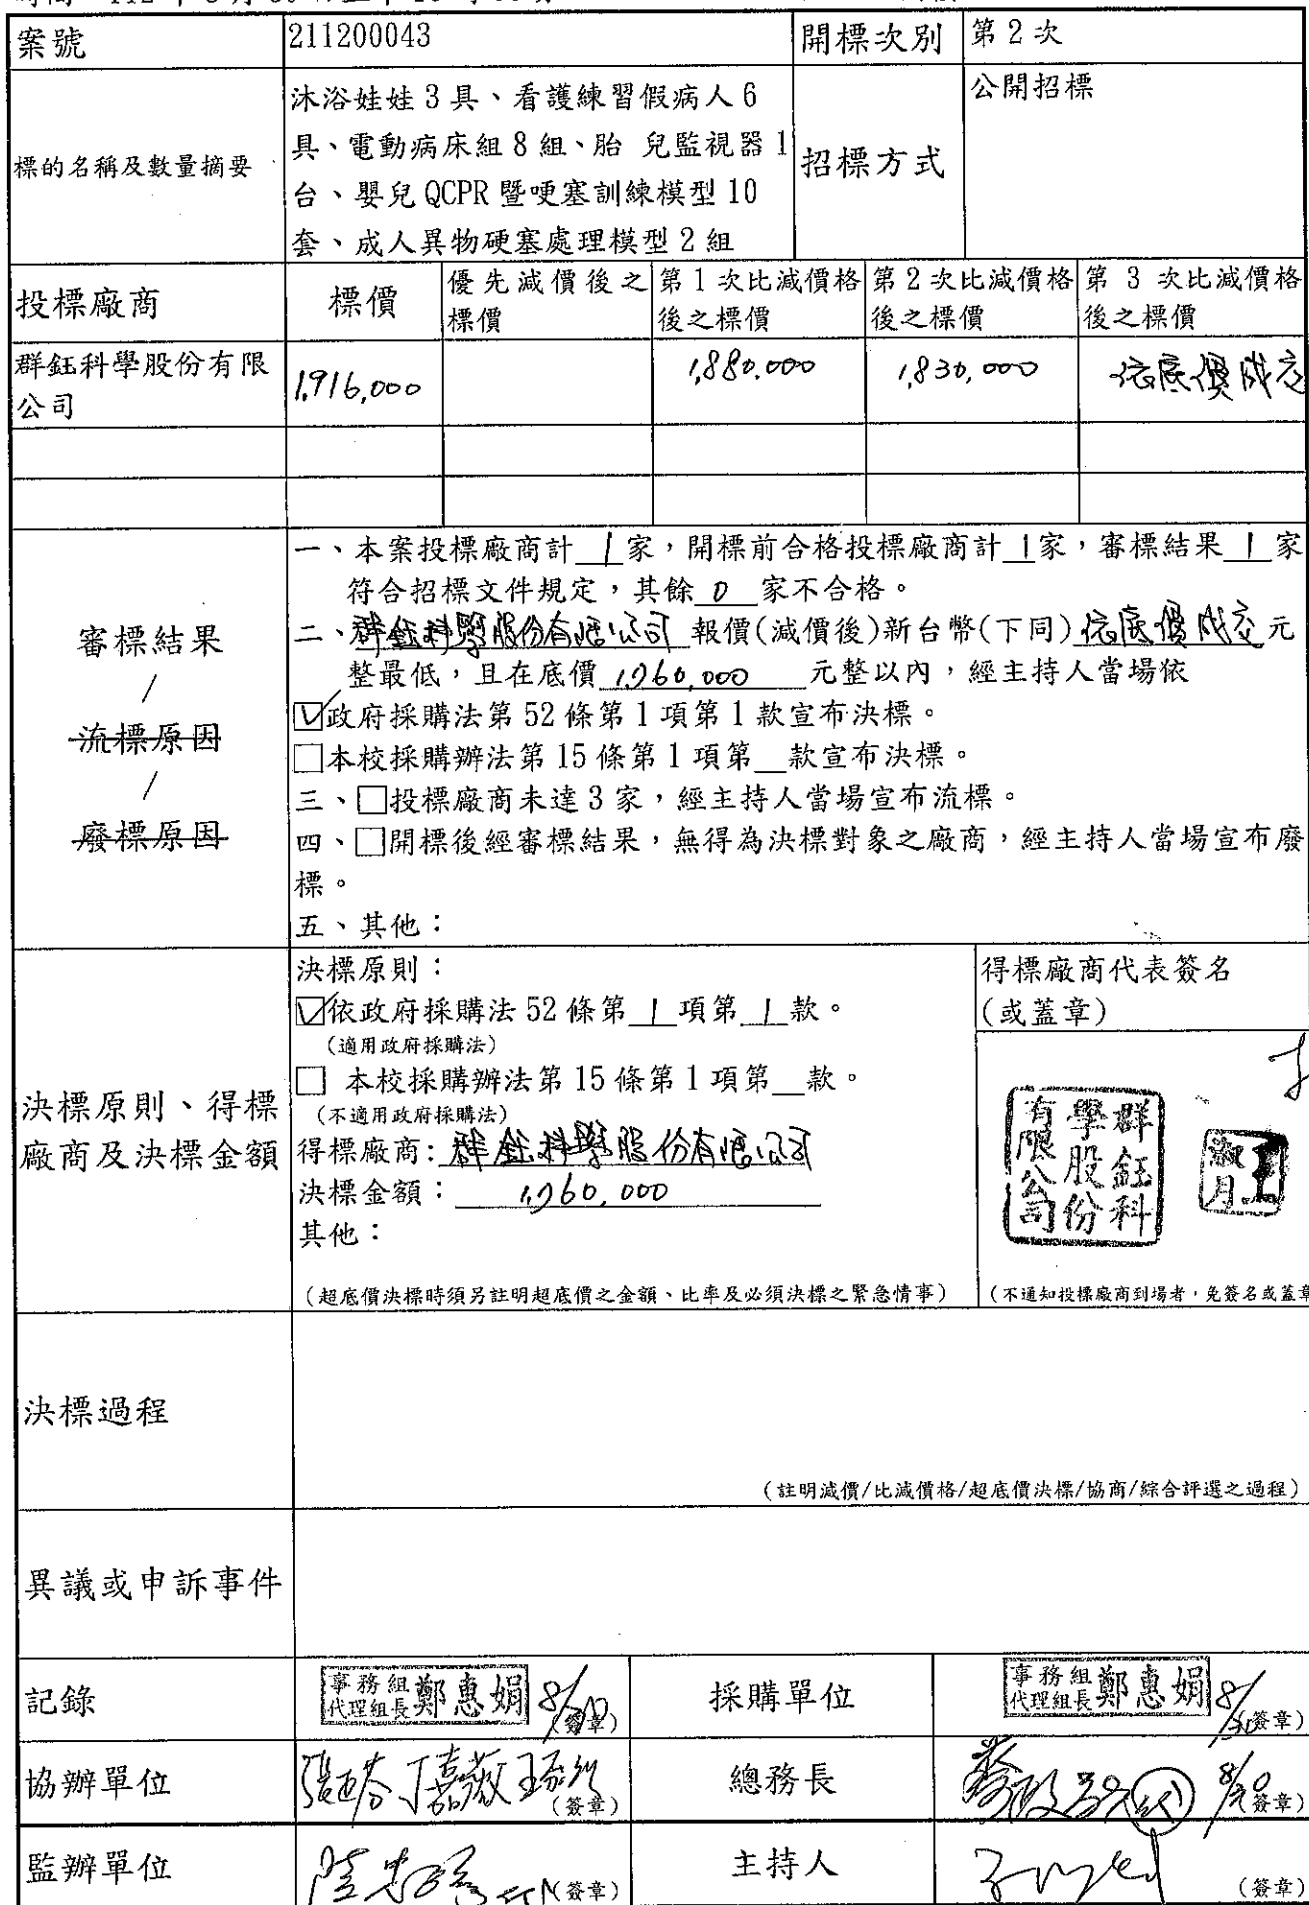 案號 211200043 開標次別 第2次
標的名稱及數量摘要
沐浴娃娃3具、看護練習假病人6
具、電動病床組8組、胎 兒監視器1
台、嬰兒QCPR暨哽塞訓練模型10
套、成人異物硬塞處理模型2組
招標方式 公開招標
投標廠商 標價 優先減價後之標價 第1次比減價格後之標價 第2次比減價格後之標價 第 3 次比減價格後之標價
群鈺科學股份有限公司 1,916,000 1,880,000 1,830,000 依底價成交
審標結果
/
流標原因
/
廢標原因
一、本案投標廠商計 1 家,開標前合格投標廠商計 1 家,審標結果 1 家
符合招標文件規定,其餘 0 家不合格。
二、群鈺科學股份有限公司 報價(減價後)新台幣(下同) 依底價成交 元
整最低,且在底價 1,760,000 元整以內,經主持人當場依
☑政府採購法第52條第1項第1款宣布決標。
□本校採購辦法第15條第1項第__款宣布決標。
三、□投標廠商未達3家,經主持人當場宣布流標。
四、□開標後經審標結果,無得為決標對象之廠商,經主持人當場宣布廢
標。
五、其他:
決標原則、得標
廠商及決標金額
決標原則:
☑依政府採購法52條第 1 項第 1 款。
(適用政府採購法)
□ 本校採購辦法第15條第1項第__款。
(不適用政府採購法)
得標廠商: 群鈺科學股份有限公司
決標金額: 1,760,000
其他:
(超底價決標時須另註明超底價之金額、比率及必須決標之緊急情事)
得標廠商代表簽名
(或蓋章)
群鈺科
學股份
有限公司
王淑月
(不通知投標廠商到場者,免簽名或蓋章
決標過程
(註明減價/比減價格/超底價決標/協商/綜合評選之過程)
異議或申訴事件
記錄 事務組代理組長 鄭惠娟 8/30 (簽章) 採購單位 事務組代理組長 鄭惠娟 8/30 (簽章)
協辦單位 (簽章) 總務長 8/30 (簽章)
監辦單位 (簽章) 主持人 (簽章)